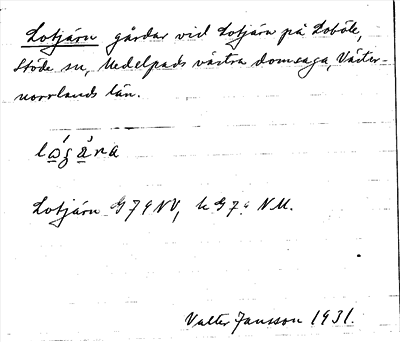 Lotjärn gårdar vid Lotjärn på Loböle,
Stöde sn, Medelpads västra domsaga, Väster-
norrlands län.
Lotjärn G 79 NV, k G 79 NV.
Valter Jansson 1931.